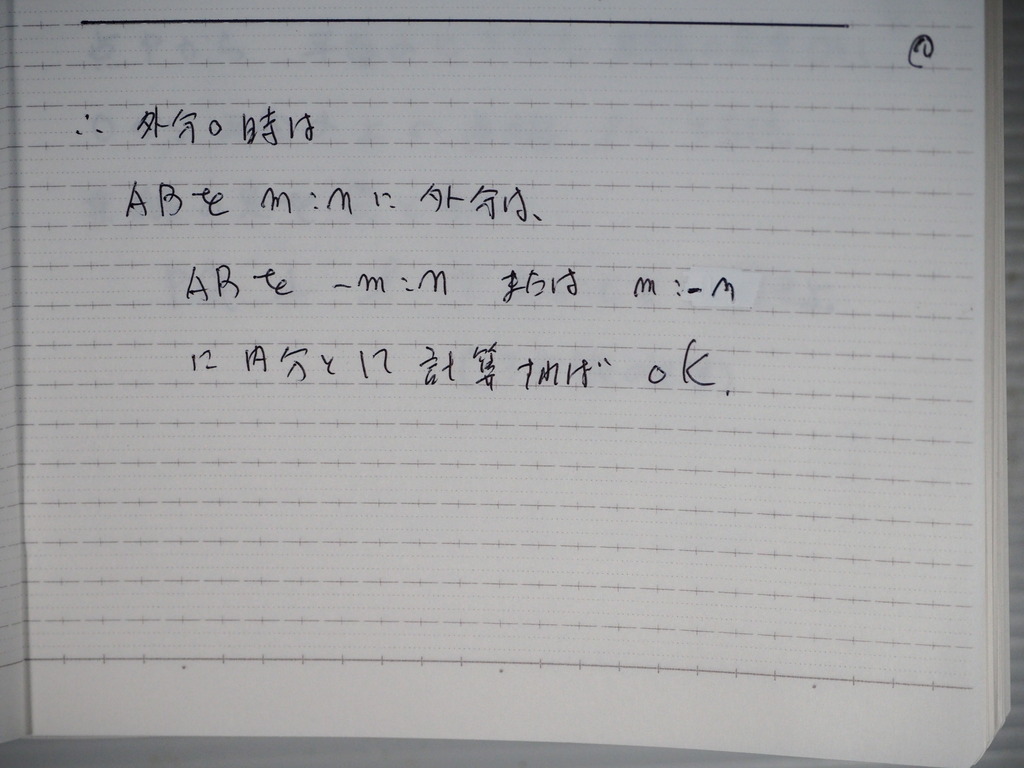 ∴ 外分の時は
ABを m:nに 外分は、
ABを -m:n または m:-n
に内分として計算すれば OK.